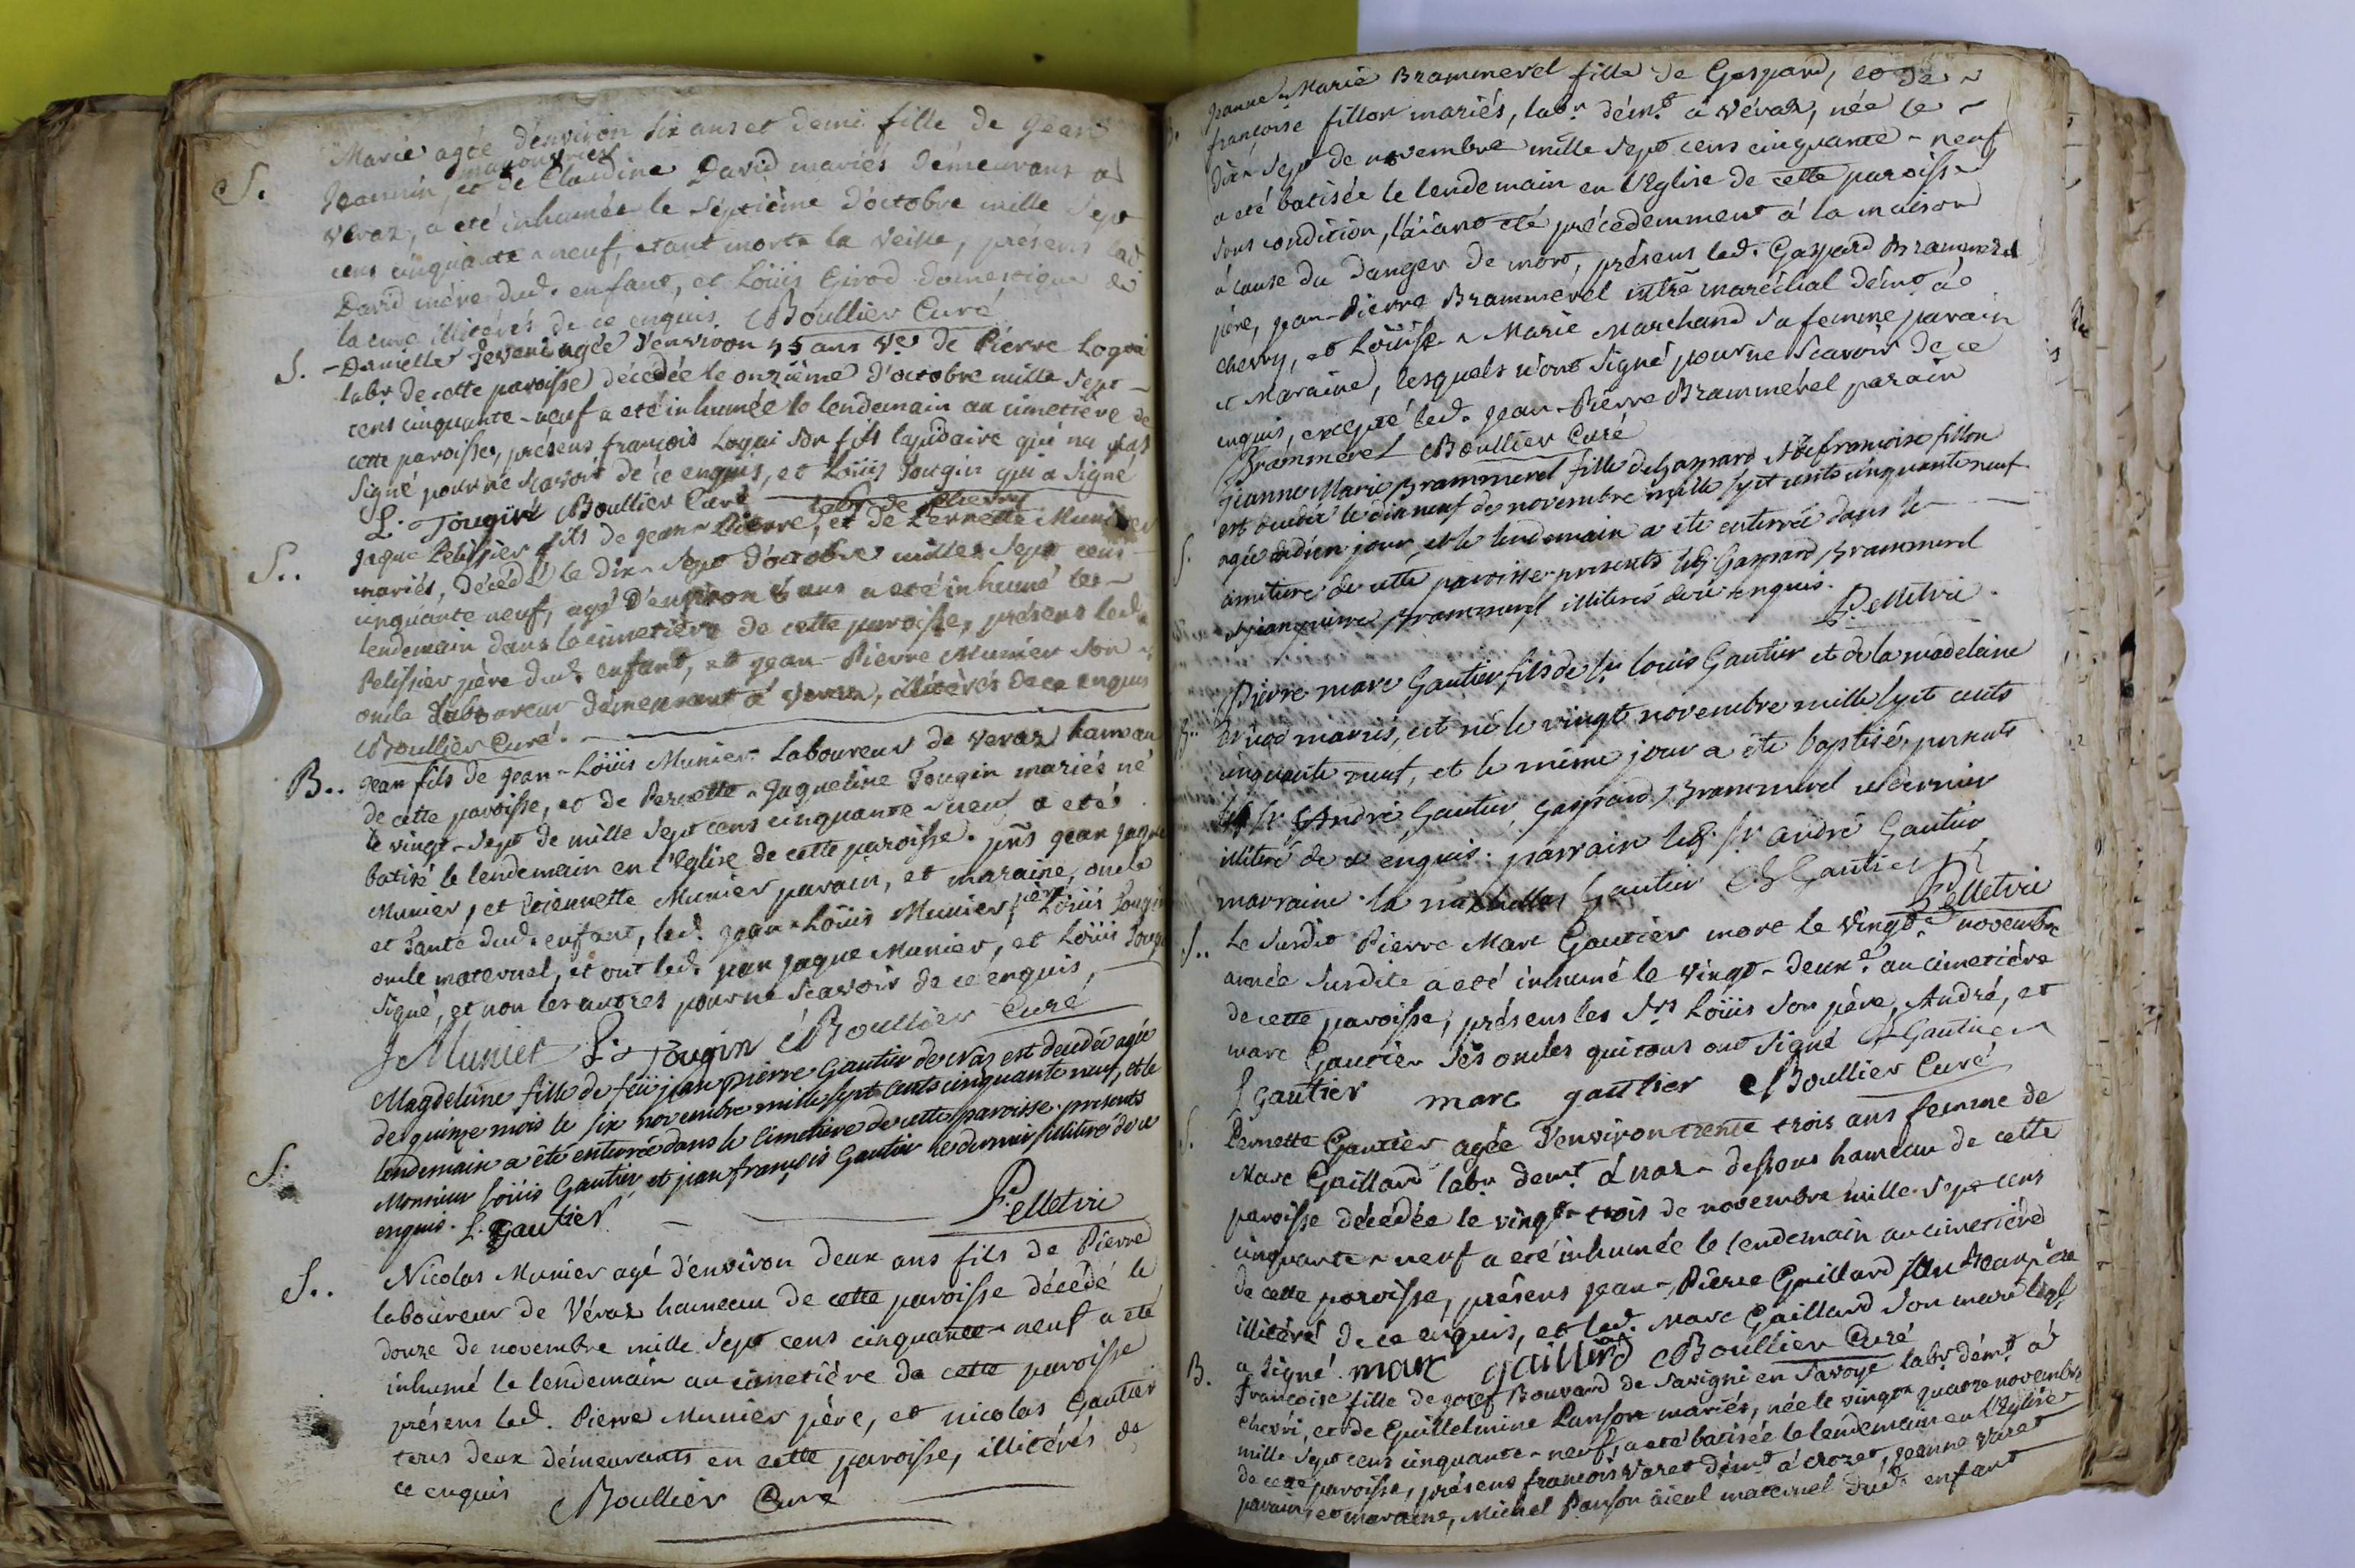 S.
Marie agée d'environ six ans et demi fille de Jean
manouvrier
Jeannin, et de Claudine David mariés démeurans a
véraz, a eté inhumée le septième d'octobre mille sept
cens cinquante-neuf, etant morte la veille, présens lad.
David mére dud. enfant, et Loüis Girod domestique de
la cure illitérés de ce enquis Boullier Curé
S.
- Danielle agée d'environ 75 ans ve. de Pierre Loqui
labr. de cette paroisse décédée le onzième d'octobre mille sept-
cens cinquante-neuf a eté inhumée le lendemain au cimetière de
cette paroisse, présens françois Loqui son fils lapidaire qui n'a pas
signé pour ne scavoir de ce enquis, et Loüis Tougin qui a signé
L. Tougin Boullier Curé
labr. de chevry
S..
Jaque Pelissier fils de Jean-Pierre, et de Pernette Munier
mariés, décédé le dix-sept d'octobre mille sept cens
cinquante neuf, agé d'environ 6 ans a eté inhumé le
lendemain dans le cimetière de cette paroisse, présens led.
Pelissier père dud. enfant, et Jean-Pierre Munier son
oncle laboureur démeurant à veraz, illitérés de ce enquis
Boullier Curé.
B..
Jean fils de Jean-Loüis Munier Laboureur de veraz hameau
de cette paroisse, et de Pernette-Jaqueline Tougin mariés né
le vingt-sept de mille sept cens cinquante neuf a eté
batisé le lendemain en l'Eglise de cette paroisse. pns Jean Jaque
Munier, et Etiennette Munier parain, et maraine, oncle
et Tante dud. enfant, led. Jean-Loüis Munier père Loüis Tougin
oncle maternel, et ont led. Jean Jaque Munier, et Loüis Tougin
signé, et non les autres pour ne scavoir de ce enquis,
J Munier L. Tougin Boullier Curé
S.
Magdeleine fille de feu jean pierre Gautier de naz est decedée agée
de quinze mois le six novembre mille sept cents cinquante neuf, et le
lendemain a été enterrée dans le Cimetiere de cette paroisse. presents
Monsieur Loüis Gautier, et jean françois Gautier ce dernier illitéré de ce
enquis. L. Gautier Pelletrie
S..
Nicolas Munier agé d'environ deux ans fils de Pierre
laboureur de Véraz hameau de cette paroisse décédé le
douze de novembre mille sept cens cinquante-neuf a eté
inhumé le lendemain au cimetière de cette paroisse
présens led. Pierre Munier père, et nicolas Gautier
tous deux démeurants en cette paroisse, illitérés de
ce enquis Boullier Curé
B.
Jeanne-Marie Brammerel fille de Gaspard, et de
françoise fillon mariés, labr. démt. à vérax, née le
dix-sept de novembre mille sept cens cinquante-neuf
a eté batisée le lendemain en l'Eglise de cette paroisse
sous condition, l'aiant eté précédemment à la maison
à cause du danger de mort, présens led. Gaspard Brammerel
père, Jean-Pierre Brammerel mtre maréchal démt. à
chevry, et Loüise-Marie Marchand sa femme parain
et Maraine, lesquels n'ont signé pour ne scavoir de ce
enquis, excepté led. Jean-Pierre Brammerel parain
Brammerel Boullier Curé
S.
jeanne Marie Brammerel fille de Gaspard et de françoise fillon
est decedée le dix neuf de novembre mille sept cents cinquante neuf
agée d'un jour, et le lendemain a été enterrée dans le
cimetiere de cette paroisse presents led. Gaspard Brammerel
et jean pierre Brammerel illiterés de ce enquis.
Pelletrie
B..
Pierre marc Gautier fils de Sr. louis Gautier et de la madelaine
mariés, est né le vingt novembre mille sept cents
cinquante neuf, et le même jour a été baptisé, presents
led. Sr. André Gautier, Gaspard Brammerel ce dernier
illitéré de ce enquis. parrain led. Sr. andré Gautier
marraine la Gautier A Gautier
Pelletrie
S..
Le Susdit Pierre Marc Gautier mort le vingt novembre
année susdite a eté inhumé le vingt-deux. au cimetière
de cette paroisse, présens les Srs Loüis son père, André, et
marc Gautier ses oncles qui tous ont signé A Gautier
L gautier marc gautier Boullier Curé
S.
Pernette Gautier agée d'environ trente trois ans femme de
Marc Gaillard labr. demt. à naz-dessous hameau de cette
paroisse décédée le vingt-trois de novembre mille sept cens
cinquante-neuf a eté inhumée le lendemain au cimetière
de cette paroisse, présens Jean-Pierre Gaillard son beaupère
illitéré de ce enquis, et led. Marc Gaillard son mari leql.
a signé. marc gaillard Boullier Curé
B.
Françoise fille de josef Bouvard de Savigni en Savoye labr. démt. à
chevri, et de Guillelmine Panson mariés, née le vingt-quatre novembre
mille sept cens cinquante-neuf, a eté batisée le lendemain en l'Eglise
de cette paroisse, présens francois Varet démt. à crozet, Jeanne Varet
parain, et maraine, Michel Panson aieul maternel dud. enfant